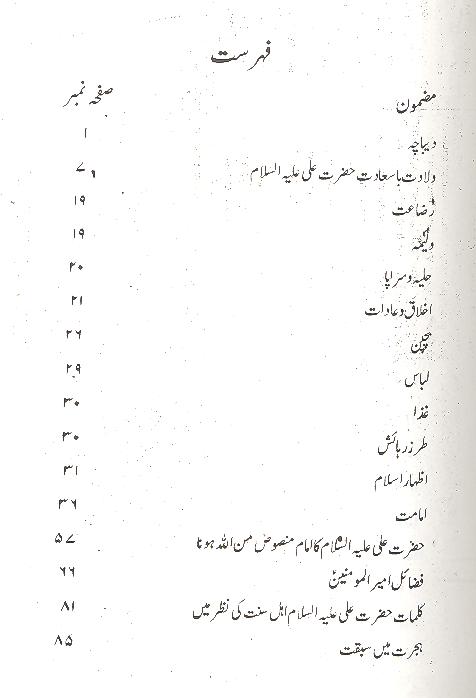 فہرست
مضمون صفحہ نمبر
دیباچہ ۱
ولادت باسعادت حضرت علی علیہ السلام ۷
رضاعت ۱۹
ولیمہ ۱۹
حلیہ و سراپا ۲۰
اخلاق و عادات ۲۱
بچپن ۲۶
لباس ۲۹
غذا ۳۰
طرز رہائش ۳۰
اظہار اسلام ۳۱
امامت ۳۶
حضرت علی علیہ السلام کا امام منصوص من اللہ ہونا ۵۷
فضائل امیر المومنینؑ ۶۶
کلمات حضرت علی علیہ السلام اھل سنت کی نظر میں ۸۱
ہجرت میں سبقت ۸۵